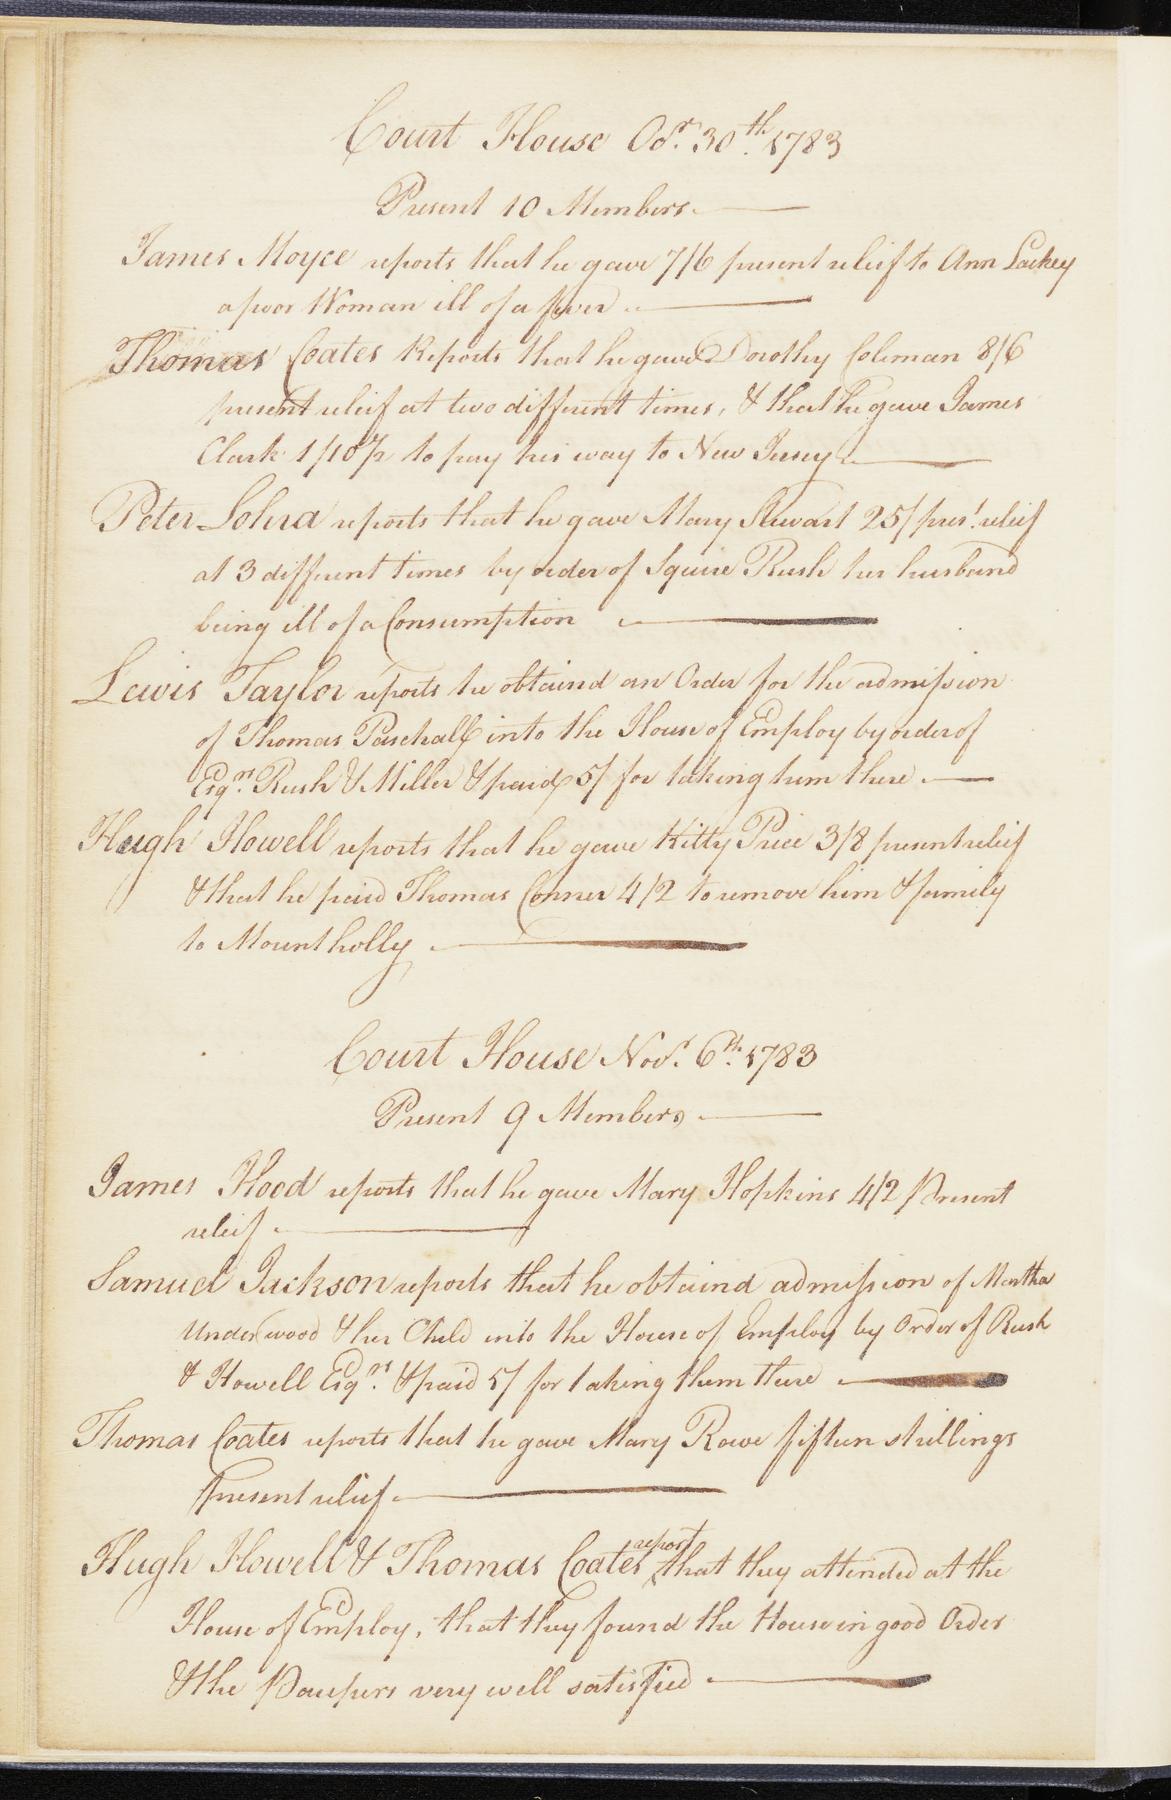 Court House Oct.r 30th. 1783
Present 10 Members.
James Moyce reports that he gave 7/6 present relief to Ann Lackey
a poor Woman ill of a fever
Thomas Coates Reports that he gave Dorothy Coleman 8/6
present releif at two different times, & that he gave James
Clark 1/10½ to pay his way to New Jersey
Peter Lohra reports that he gave Mary Stewart 25/ pres.t releif
at 3 different times by order of Squire Rush her husband
being ill of a Consumption
Lewis Taylor reports he obtaind an Order for the admission
of Thomas Paschall into the House of Employ by order of
Esq.rs Rush & Miller & paid 5/ for taking him there
Hugh Howell reports that he gave Kitty Price 3/8 present releif
& that he paid Thomas Conner 4/2 to remove him & family
to Mountholly
Court House Nov.r 6th. 1783
Present 9 Members
James Hood reports that he gave Mary Hopkins 4/2 Present
releif
Samuel Jackson reports that he obtaind admission of Martha
Underwood & her Child into the House of Employ by Order of Rush
& Howell Esq.rs & paid 5/ for taking them there
Thomas Coates reports that he gave Mary Rowe fifteen shillings
present releif
Hugh Howell & Thomas Coates report that they attended at the
House of Employ, that they found the House in good Order
& the Paupers very well satisfied